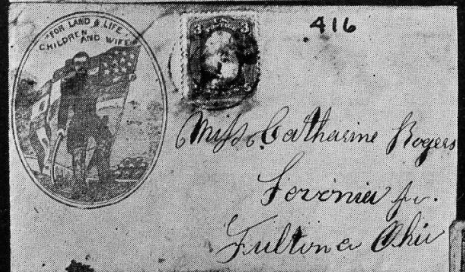 "FOR LAND & LIFE
CHILDREN AND WIFE"
3 3
416
Miss Catharine Rogers
Fultona Ohio